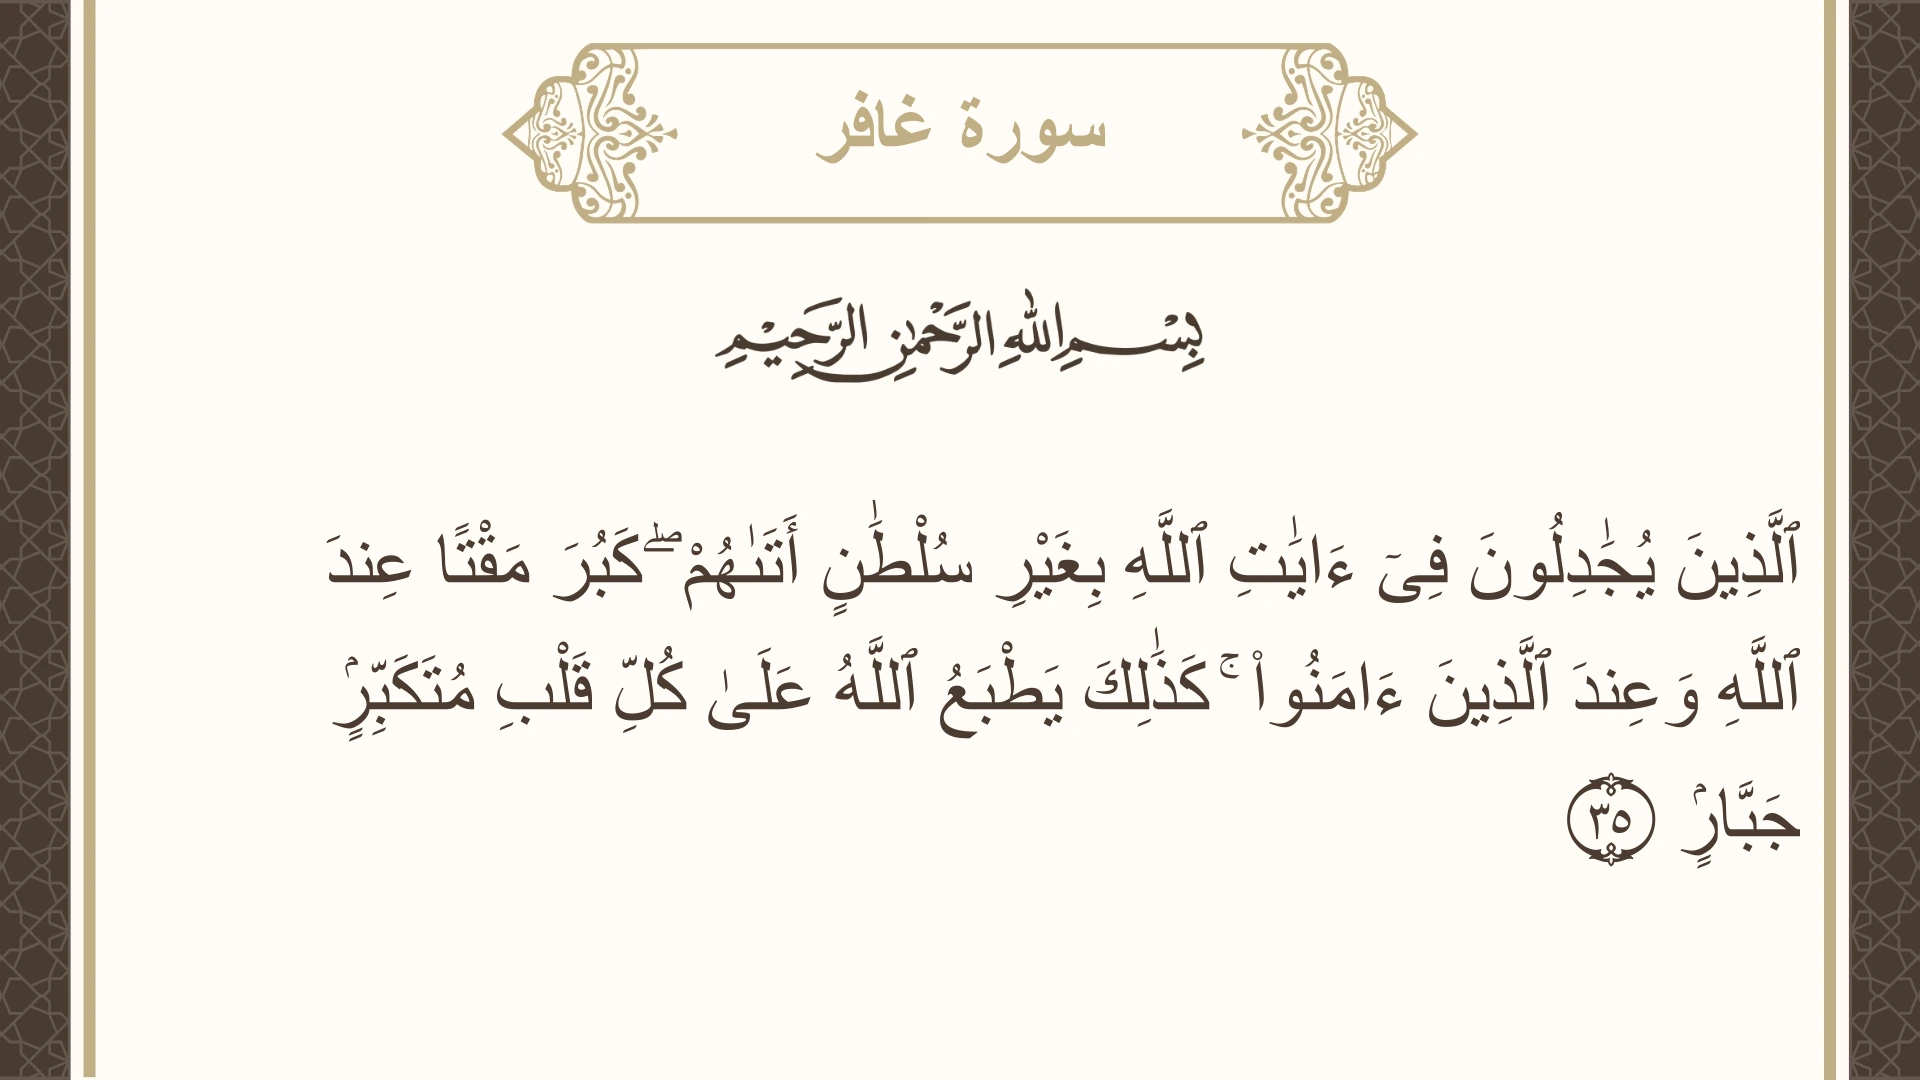 سورة غافر
بِسْمِ اللهِ الرَّحْمٰنِ الرَّحِيْمِ
ٱلَّذِينَ يُجَٰدِلُونَ فِىٓ ءَايَٰتِ ٱللَّهِ بِغَيْرِ سُلْطَٰنٍ أَتَىٰهُمْ ۖ كَبُرَ مَقْتًا عِندَ
ٱللَّهِ وَعِندَ ٱلَّذِينَ ءَامَنُوا۟ ۚ كَذَٰلِكَ يَطْبَعُ ٱللَّهُ عَلَىٰ كُلِّ قَلْبِ مُتَكَبِّرٍۢ
جَبَّارٍۢ ٣٥